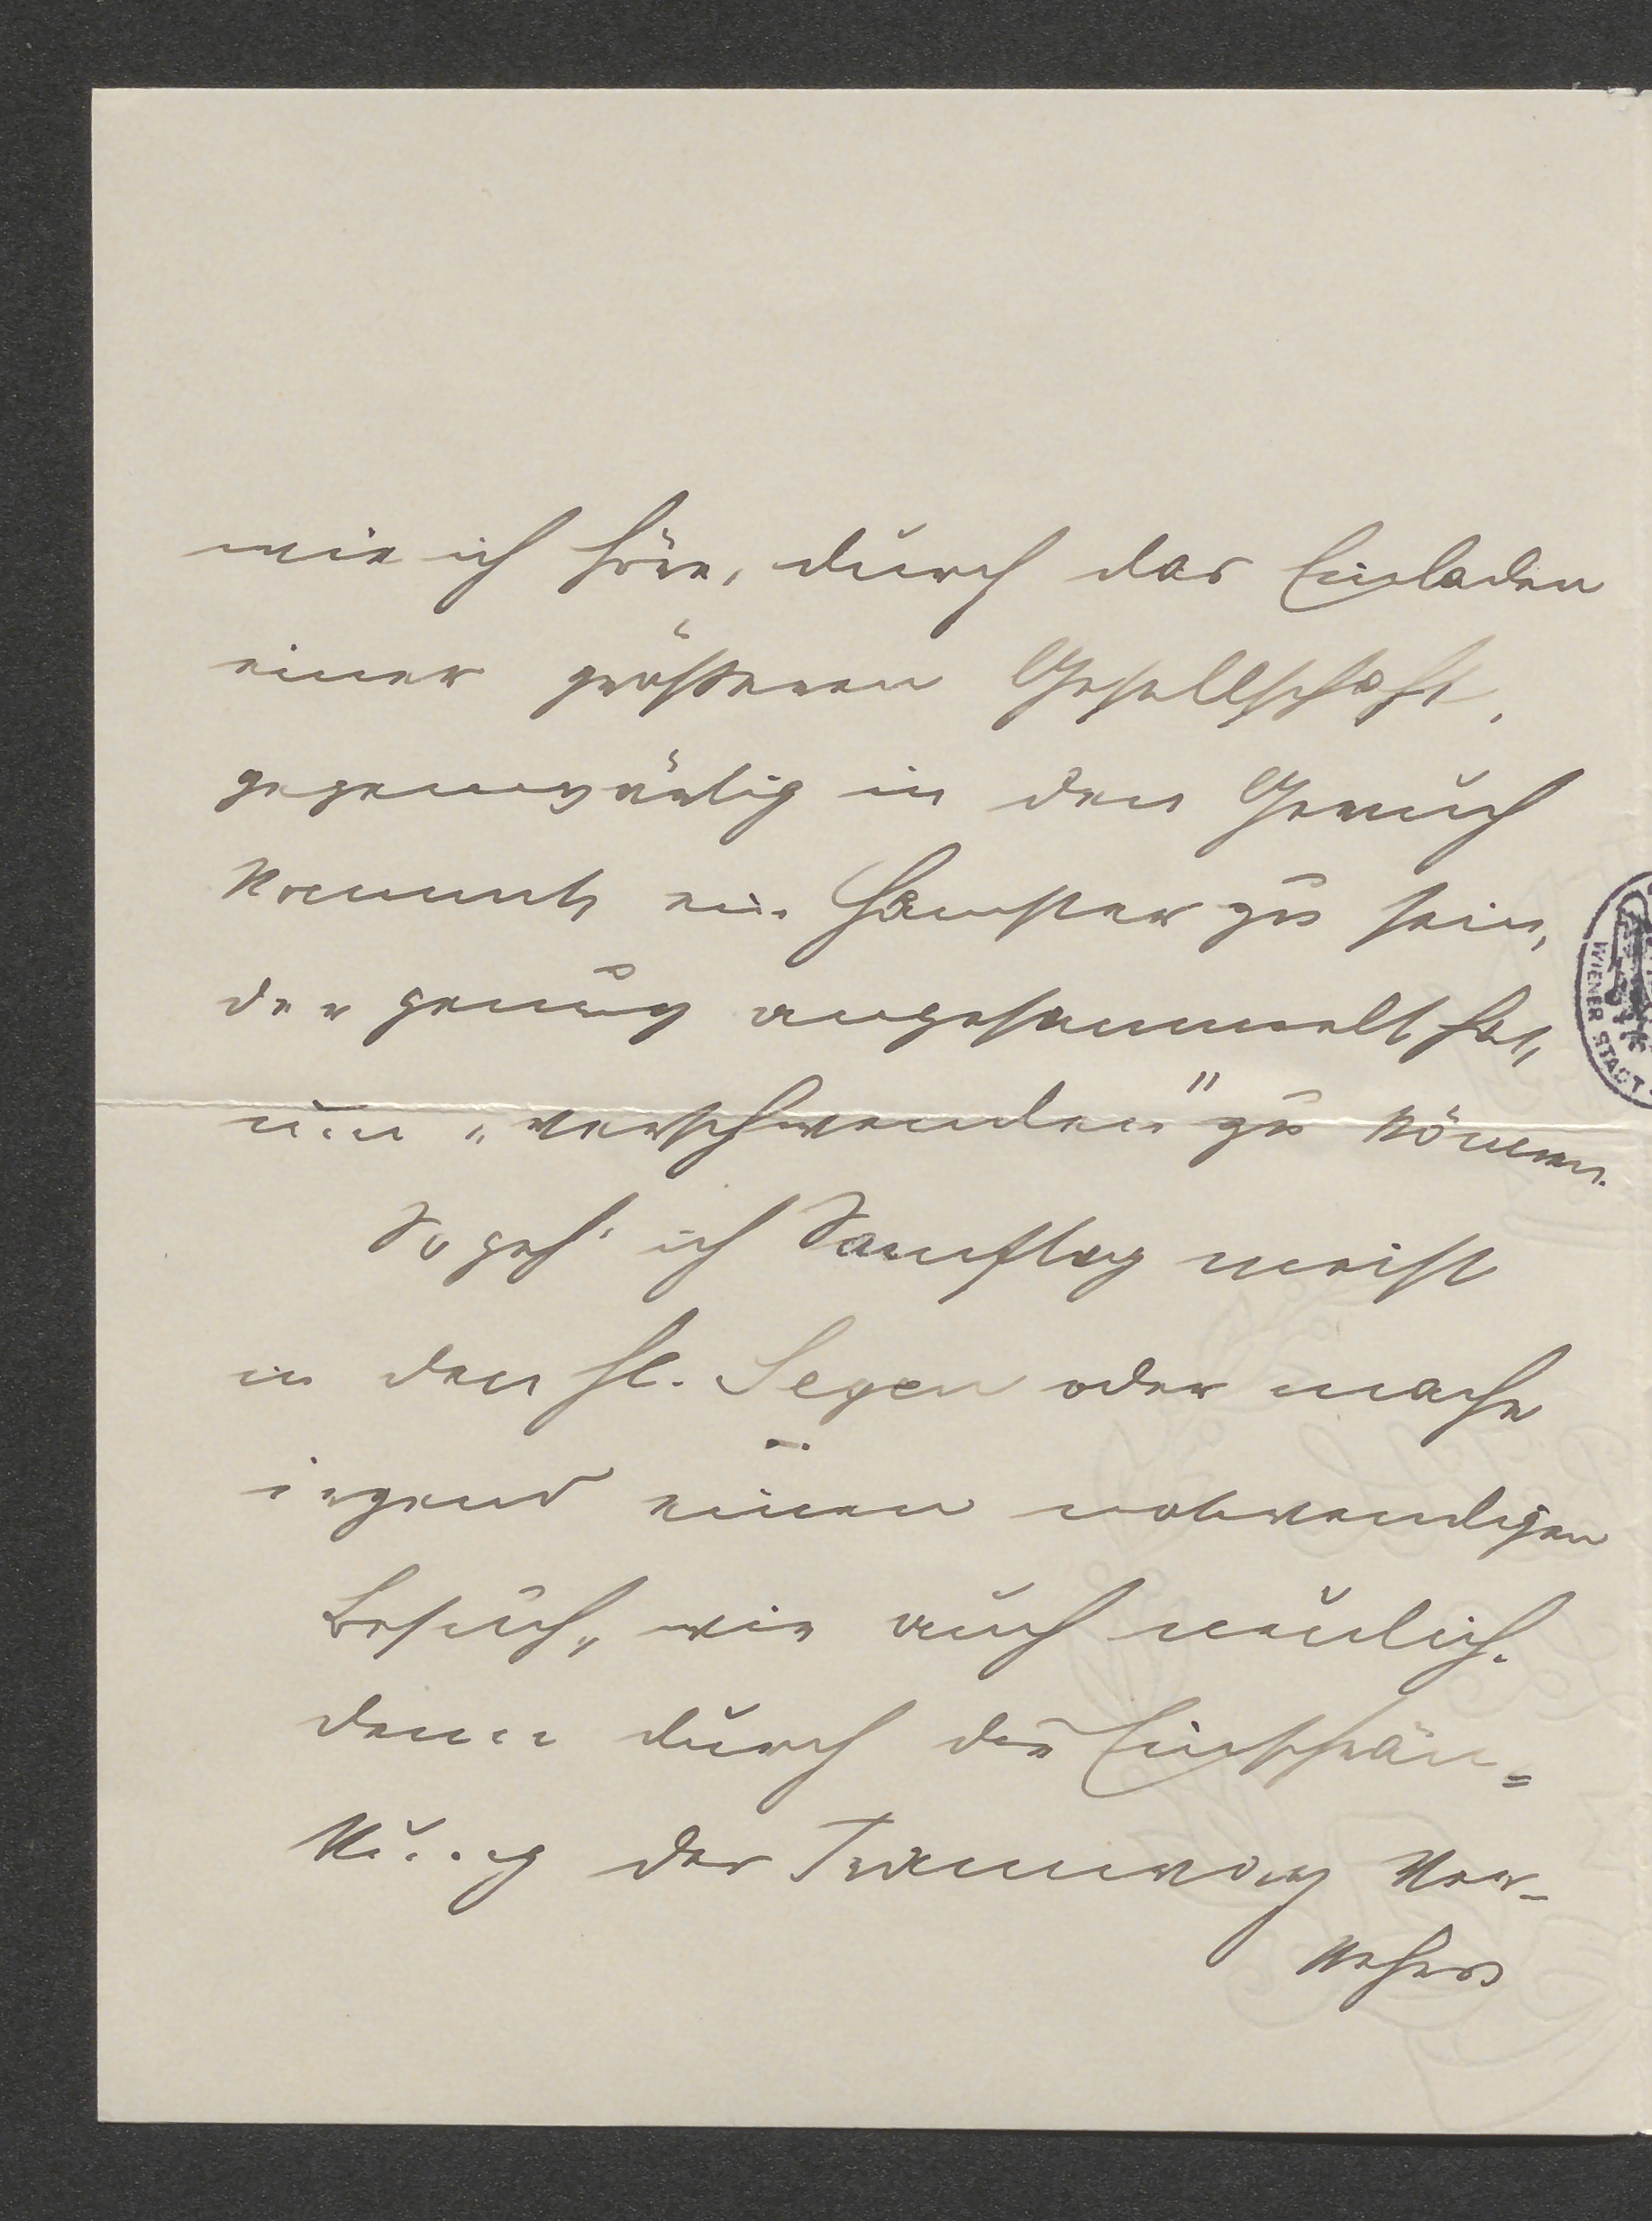 wie ich höre, durch das Einladen
einer größeren Gesellschaft,
gegenwärtig in den Geruch
kommt, ein Hamster zu sein,
der genug angesammelt hat,
um „verschwenden" zu können.
So geh' ich Samstag meist
in den hl. Segen oder mache
irgend einen notwendigen
Besuch, wie auch neulich.
denn durch die Einschrän=
kung des Tramway Ver-
kehrs
WIENER STADT